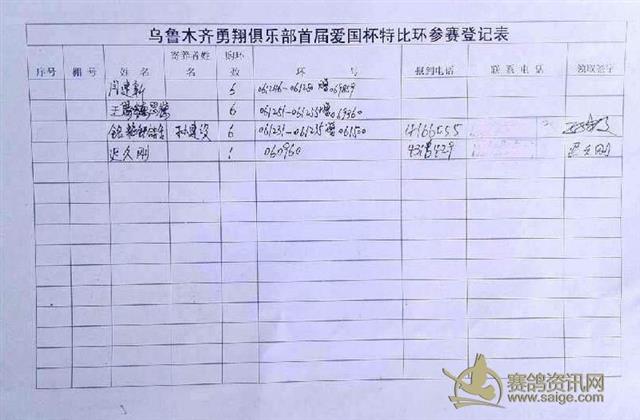 乌鲁木齐勇翔俱乐部首届爱国杯特比环参赛登记表
序号 棚号 姓名 寄养者姓名 购环数 环号 报到电话 联系电话 领取签字
闫建新 5 061246-061250 赠069859
6 061251-061255 赠069860
6 061231-061235 赠061500 4166055
迟久刚 1 060960 迟久刚
赛鸽资讯网
www.saige.com